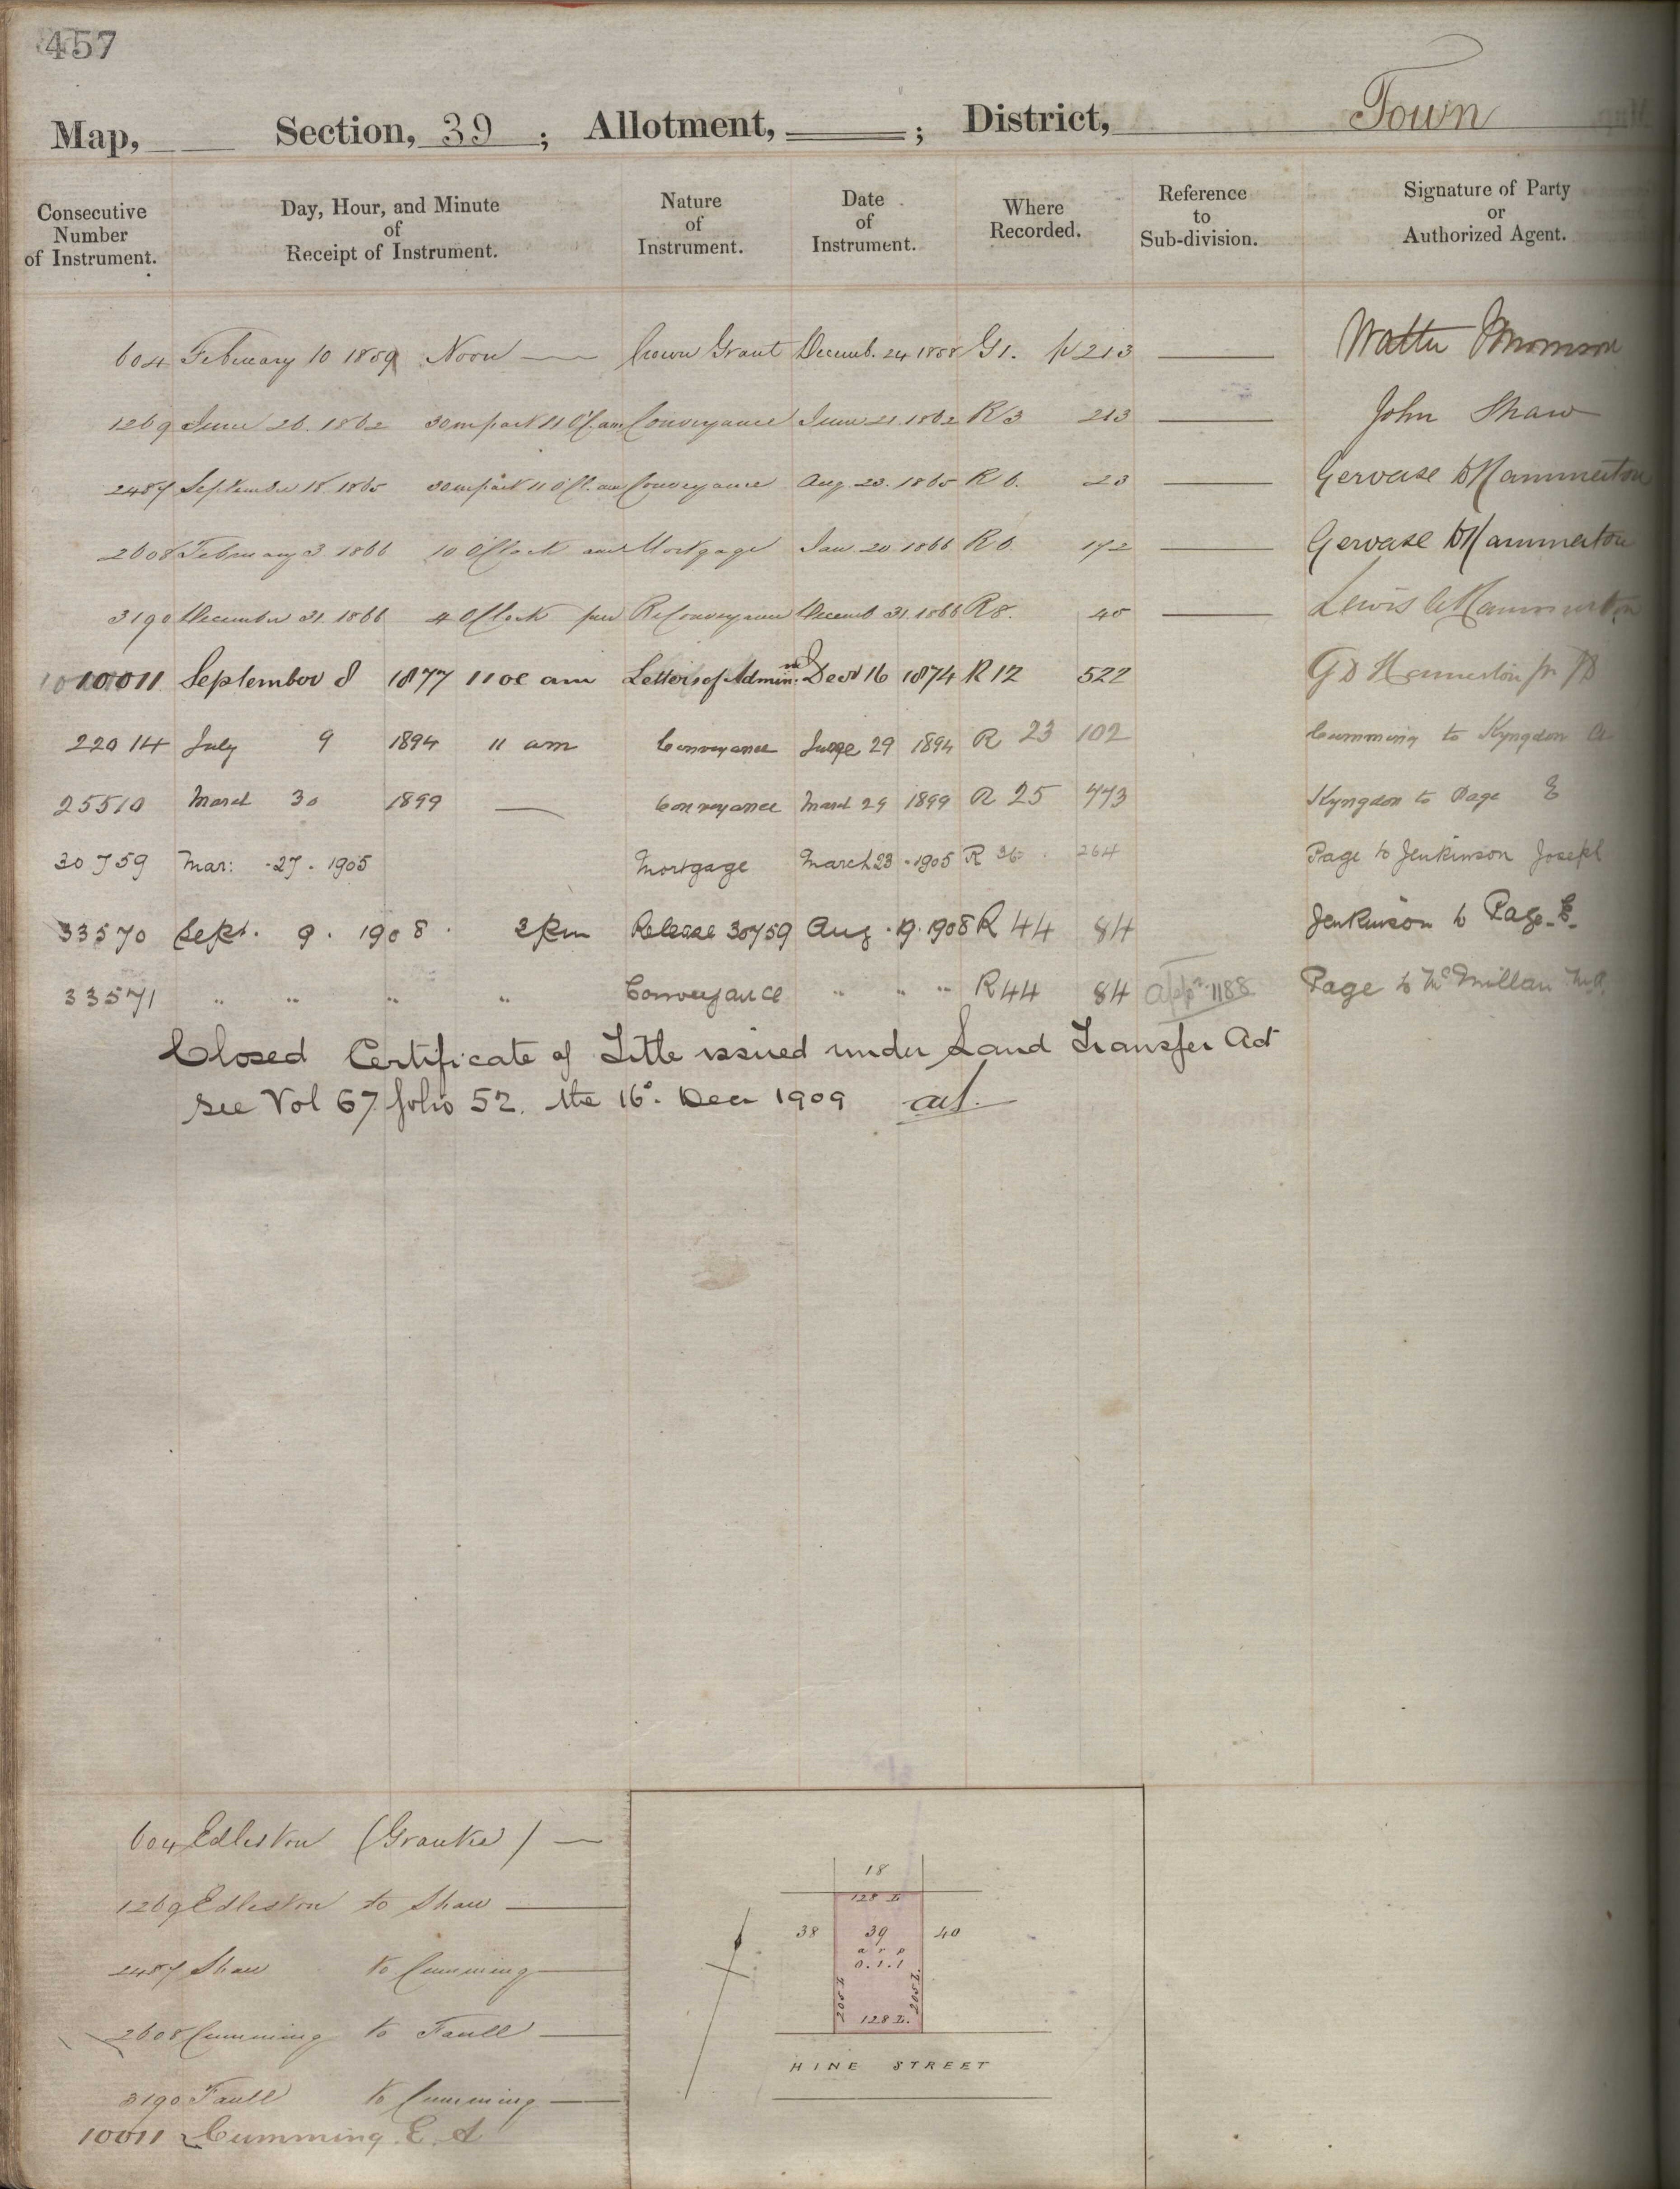 457
Map, Section, 39 ; Allotment, ; District, Town
Consecutive Number of Instrument. Day, Hour, and Minute of Receipt of Instrument. Nature of Instrument. Date of Instrument. Where Recorded. Reference to Sub-division. Signature of Party or Authorized Agent.
604 February 10 1859 Noon Crown Grant Decemb. 24 1858 G1. p 213 Walter Thomson
1269 June 26. 1862 30 m past 11 O'C. am Conveyance June 21. 1862 R3 213 John Shaw
2487 September 18. 1865 30 m past 11 O'Cl. am Conveyance Aug. 23. 1865 R 6. 23 Gervase D Hammerton
2608 February 3 1866 10 O'Clock am Mortgage Jan 20. 1866 R 6 172 Gervase D Hammerton
3190 December 31. 1866 4 O'Clock pm ReConveyance Decemb 31. 1866 R 8. 45 Lewis Hammerton
10011 September 8 1877 11 OC am Letters of Admin. Decr 16 1874 R 12 522 G D Hamerton
22014 July 9 1894 11 am Conveyance June 29 1894 R 23 102 Cumming to Kyngdon A
25510 March 30 1899 Conveyance March 29 1899 R 25 773 Kyngdon to Page E
30759 Mar: 27. 1905 Mortgage March 23 . 1905 R 36 264 Page to Jenkinson Joseph
33570 Sept. 9. 1908. 3 pm Release 30759 Aug. 19. 1908 R 44 84 Jenkinson to Page E.
33571 " " " " Conveyance " " " R 44 84 appn 1188 Page to McMillan M A.
Closed Certificate of Title issued under Land Transfer Act
see Vol 67 folio 52. the 16°. Decr 1909
604 Edleston (Grantee)
1269 Edleston to Shaw
2487 Shaw to Cumming
2608 Cumming to Faull
3190 Faull to Cumming
10011 Cumming E. A
18
128 L.
38 39 40
a r p
0.1.1
205 L 205 L.
128 L.
HINE STREET